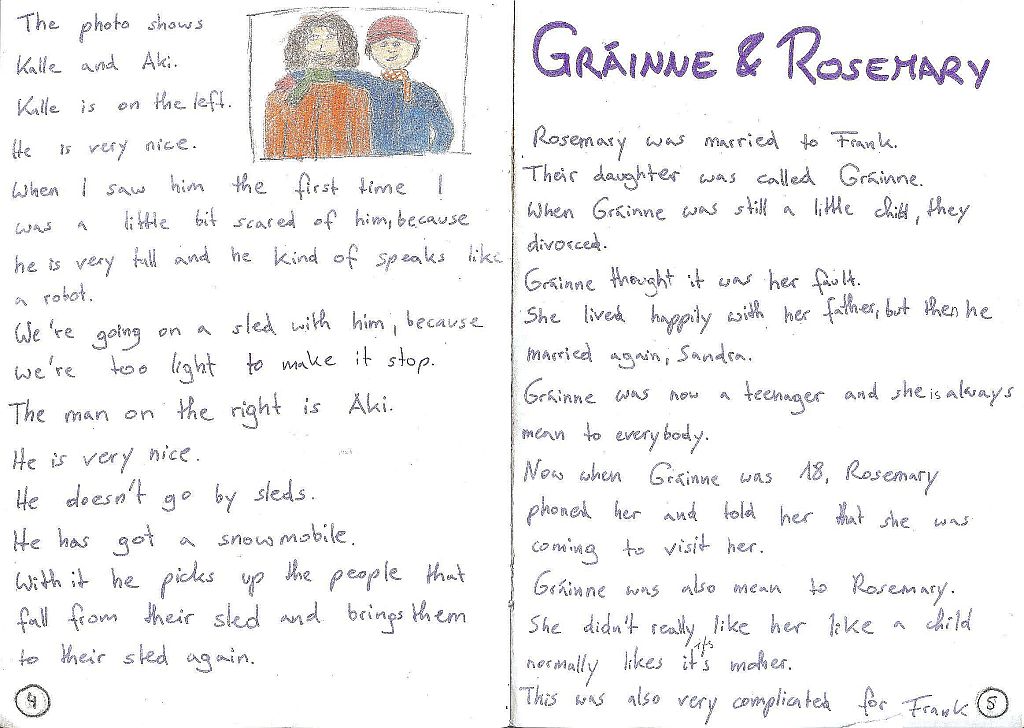 The photo shows
Kalle and Aki.
Kalle is on the left.
He is very nice.
When I saw him the first time I
was a little bit scared of him, because
he is very tall and he kind of speaks like
a robot.
We're going on a sled with him, because
we're too light to make it stop.
The man on the right is Aki.
He is very nice.
He doesn't go by sleds.
He has got a snowmobile.
With it he picks up the people that
fall from their sled and brings them
to their sled again.
4
GRÁINNE & ROSEMARY
Rosemary was married to Frank.
Their daughter was called Gráinne.
When Gráinne was still a little child, they
divorced.
Gráinne thought it was her fault.
She lived happily with her father, but then he
married again, Sandra.
Gráinne was now a teenager and she is always
mean to everybody.
Now when Gráinne was 18, Rosemary
phoned her and told her that she was
coming to visit her.
Gráinne was also mean to Rosemary.
She didn't really like her like a child
normally likes it's its mother.
This was also very complicated for Frank
5